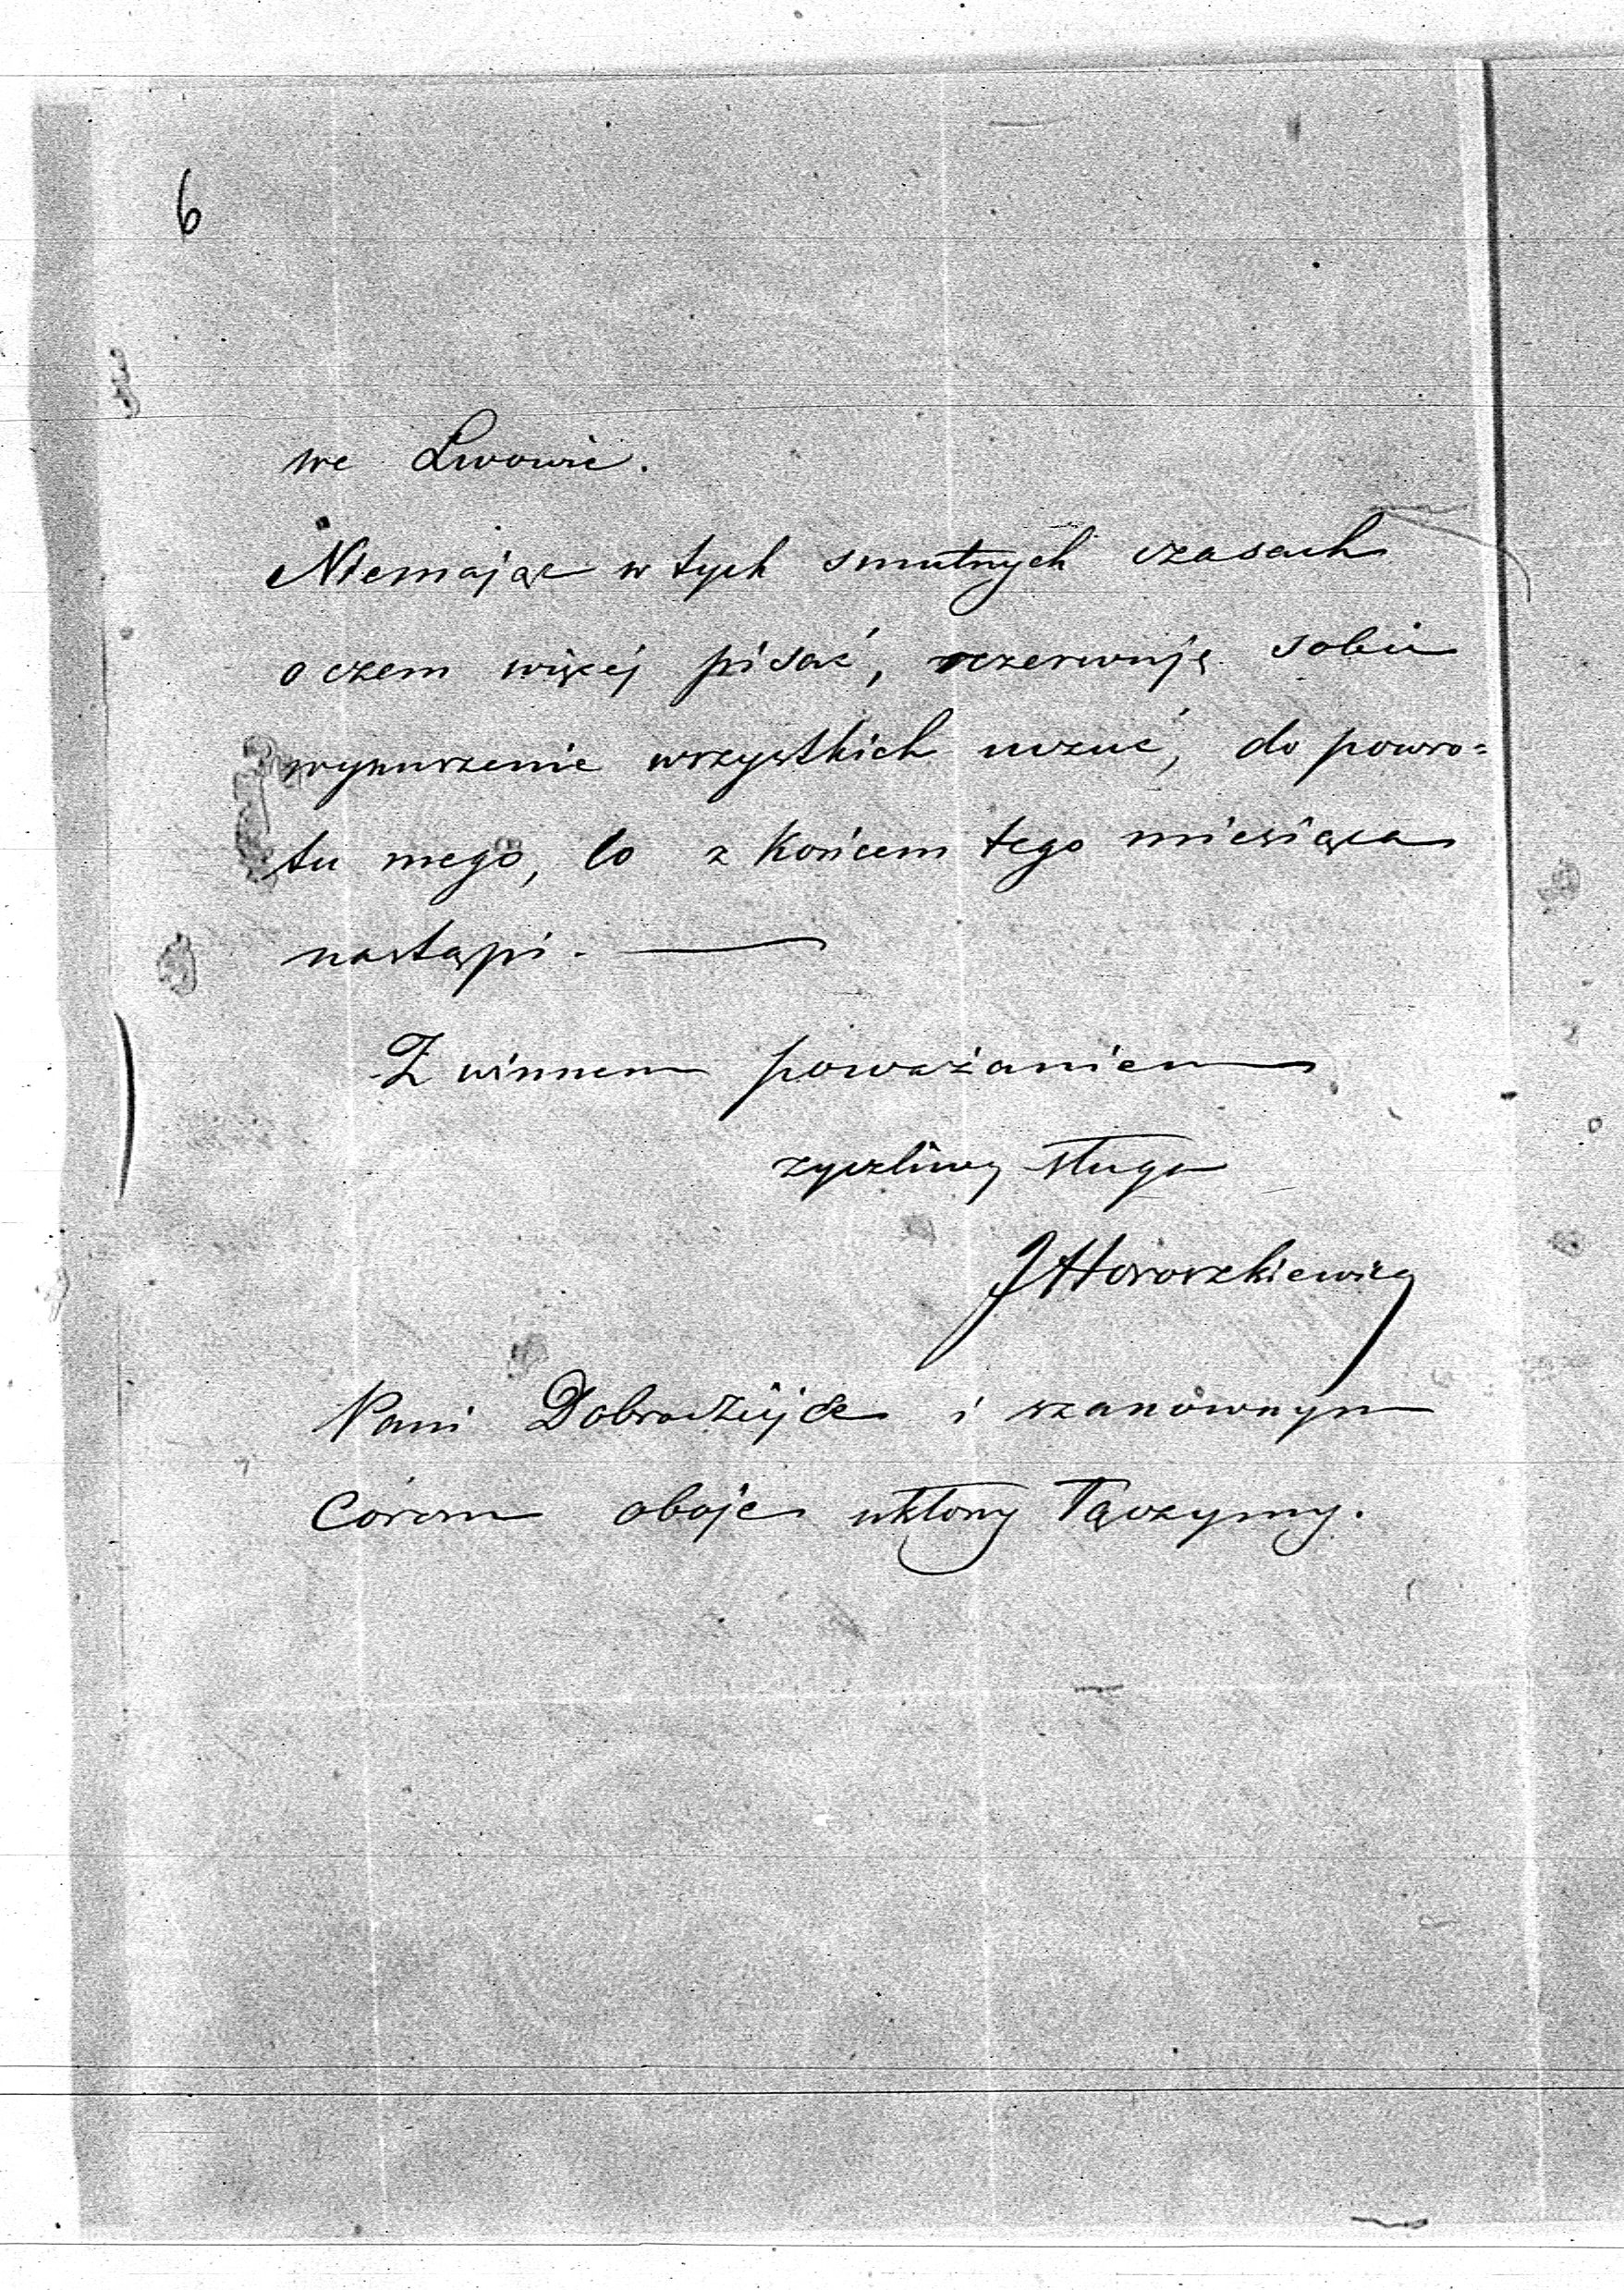 6
we Lwowie.
Niemając w tych smutnych czasach
o czem więcej pisać, rezerwuję sobie
wynurzenie wszystkich uczuć, do powro=
tu mego, co z końcem tego miesiąca
nastąpi. —
Z winnem poważaniem
życzliwy sługa
J Horoszkiewicz
Pani Dobrodziejce i szanownym
Córom oboje ukłony łączymy.